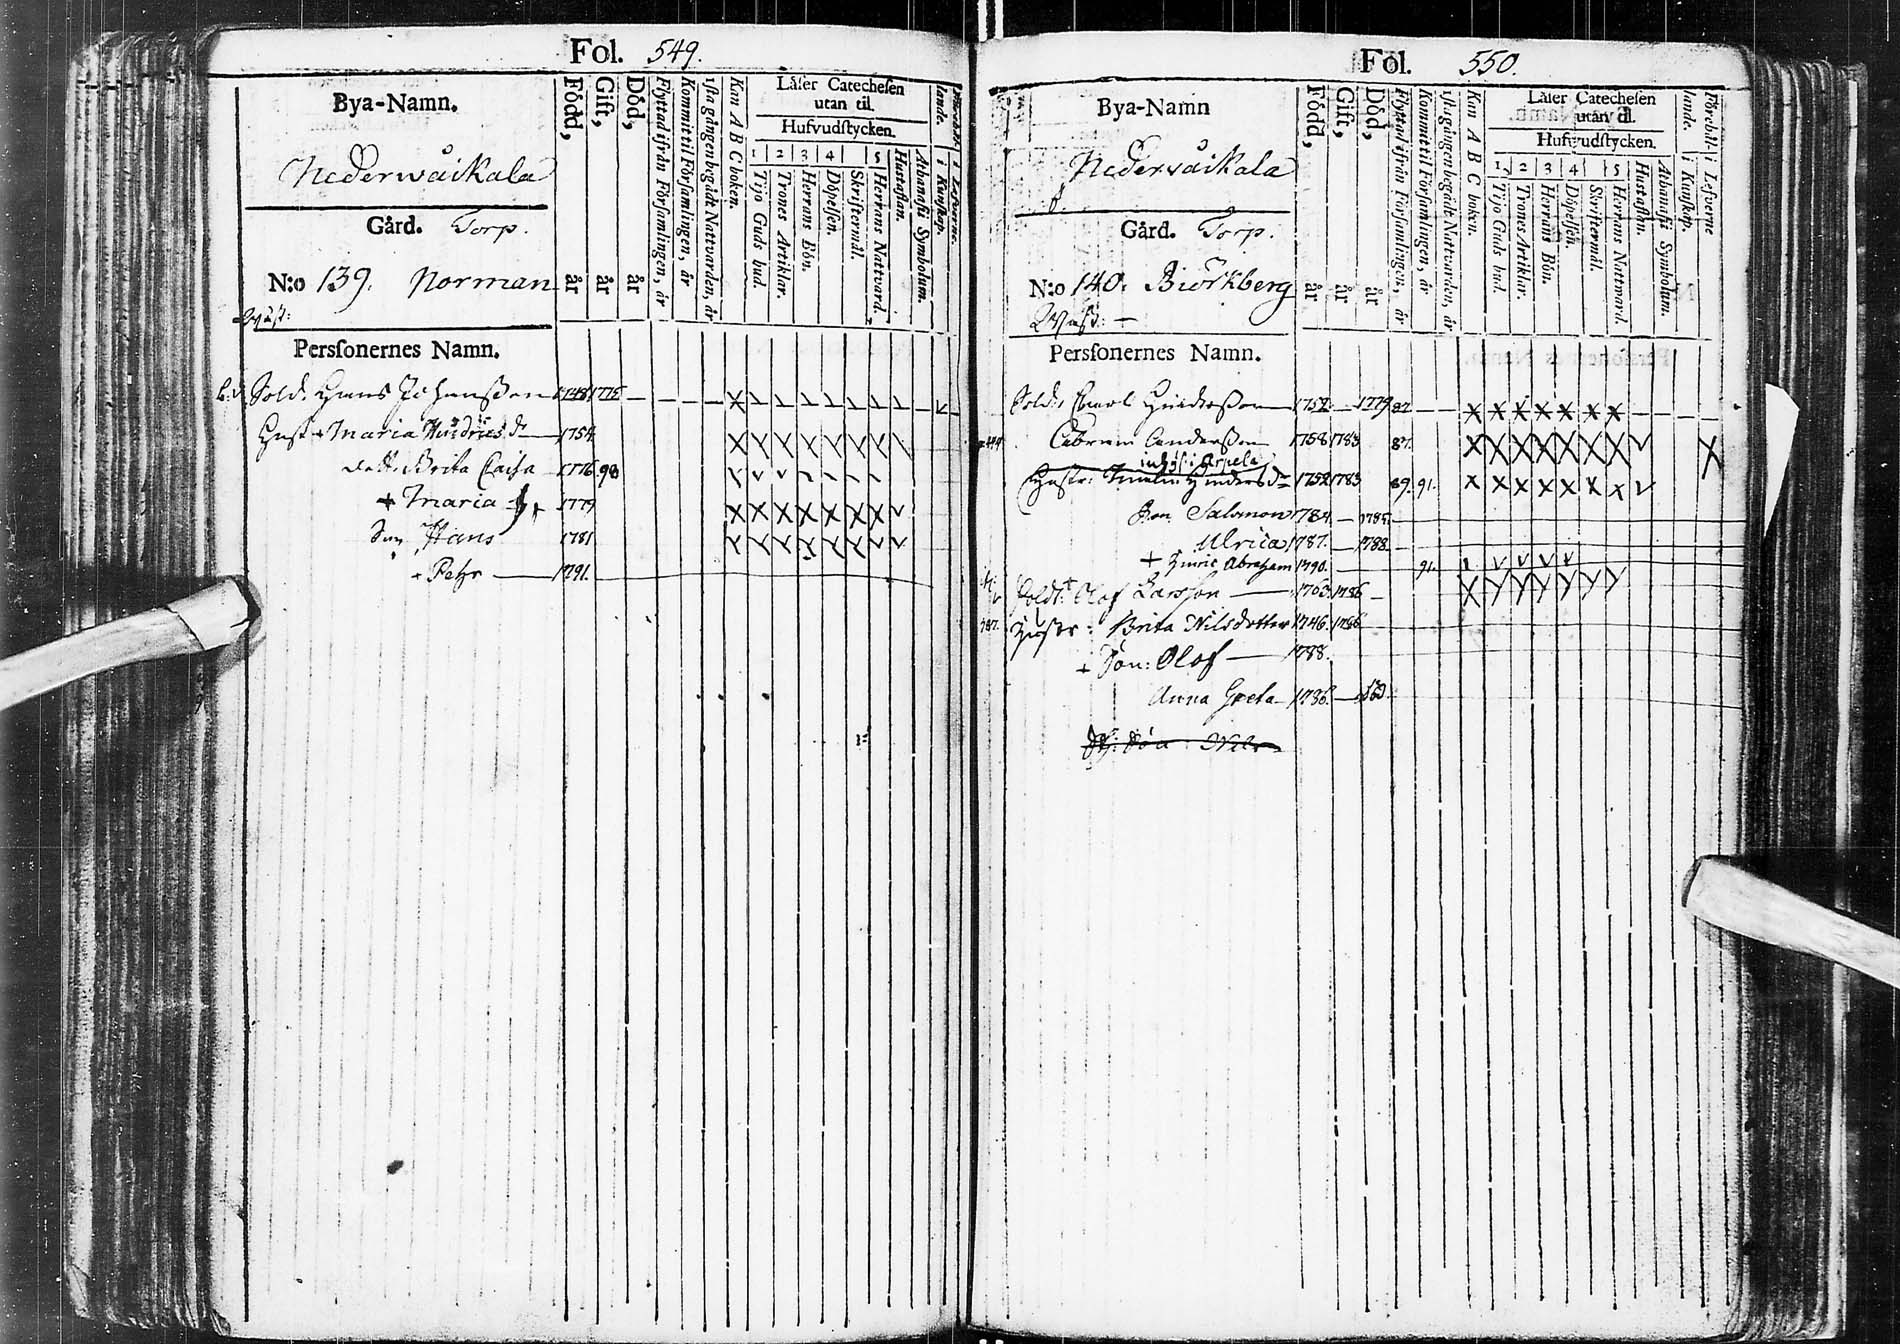 Fol. 549.
Bya-Namn.
Nederwåikala
Gård. Torp.
N:o 139. Norman
Född, år
Gift, år
Död, år
Flyttad ifrån Församlingen, år
Kommit til Församlingen, år
1sta gången begådt Nattvarden, år
Kan A B C boken.
Läser Catechesen
utan til.
Hufvudstycken.
1 2 3 4 5
Tijo Guds bud.
Trones Artiklar.
Herrans Bön.
Döpelsen.
Skriftermål.
Herrans Nattvard.
Hustaflan.
Athanasii Symbolum.
i Kunskap.
i Lefverne.
Personernes Namn.
Sold. Hans Johansson 1748 1775
Hust. Maria Hindrics dr 1754
Dott. Brita Caisa 1776 90
+ Maria 1779
Son Hans 1781
+ Petr 1791.
Fol. 550.
Bya-Namn
Nederwåikala
Gård. Torp.
N:o 140. Biörkberg
Född, år
Gift, år
Död, år
Flyttad ifrån Församlingen, år
Kommit til Församlingen, år
1sta gången begådt Nattvarden, år
Kan A B C boken.
Läser Catechesen
utan til.
Hufvudstycken.
1 2 3 4 5
Tijo Guds bud.
Trones Artiklar.
Herrans Bön.
Döpelsen.
Skriftermål.
Herrans Nattvard.
Hustaflan.
Athanasii Symbolum.
i Kunskap.
i Lefverne
Personernes Namn.
Sold. Hindersson 1752 1779
Abram Andersson 1758 1783 87.
Hustr: Hinders dr 1752 1783 89. 91.
Son Salomon 1784. 1785.
Ulrica 1787. 1788.
+ Hinric Abraham 1790. 91.
Soldt. Olof Larsson 1763. 1786
Hustr: Brita Nilsdotter 1746. 1786
+ Son: Olof 1788.
Anna Greta 1786.
Son Nils